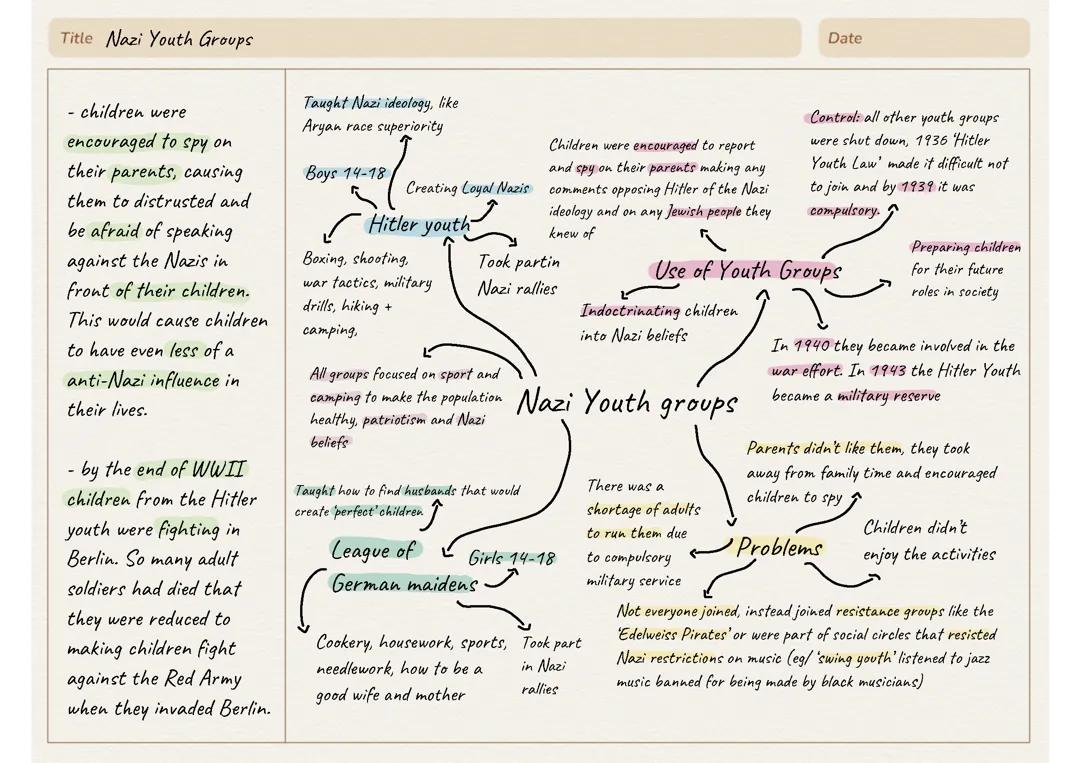 Title Nazi Youth Groups
Date
- children were
encouraged to spy on
their parents, causing
them to distrusted and
be afraid of speaking
against the Nazis in
front of their children.
This would cause children
to have even less of a
anti-Nazi influence in
their lives.
- by the end of WWII
children from the Hitler
youth were fighting in
Berlin. So many adult
soldiers had died that
they were reduced to
making children fight
against the Red Army
when they invaded Berlin.
Taught Nazi ideology, like
Aryan race superiority
Boys 14-18
Creating Loyal Nazis
Hitler youth
Boxing, shooting,
war tactics, military
drills, hiking +
camping,
Took partin
Nazi rallies
Children were encouraged to report
and spy on their parents making any
comments opposing Hitler of the Nazi
ideology and on any Jewish people they
knew of
Control: all other youth groups
were shut down, 1936 'Hitler
Youth Law' made it difficult not
to join and by 1939 it was
compulsory.
Use of Youth Groups
Preparing children
for their future
roles in society
Indoctrinating children
into Nazi beliefs
In 1940 they became involved in the
war effort. In 1943 the Hitler Youth
became a military reserve
All groups focused on sport and
camping to make the population
healthy, patriotism and Nazi
beliefs
Nazi Youth groups
Taught how to find husbands that would
create 'perfect' children
League of
German maidens
Girls 14-18
Cookery, housework, sports,
needlework, how to be a
good wife and mother
Took part
in Nazi
rallies
Parents didn't like them, they took
away from family time and encouraged
children to spy
There was a
shortage of adults
to run them due
to compulsory
military service
Problems
Children didn't
enjoy the activities
Not everyone joined, instead joined resistance groups like the
'Edelweiss Pirates' or were part of social circles that resisted
Nazi restrictions on music (eg/ 'swing youth' listened to jazz
music banned for being made by black musicians)